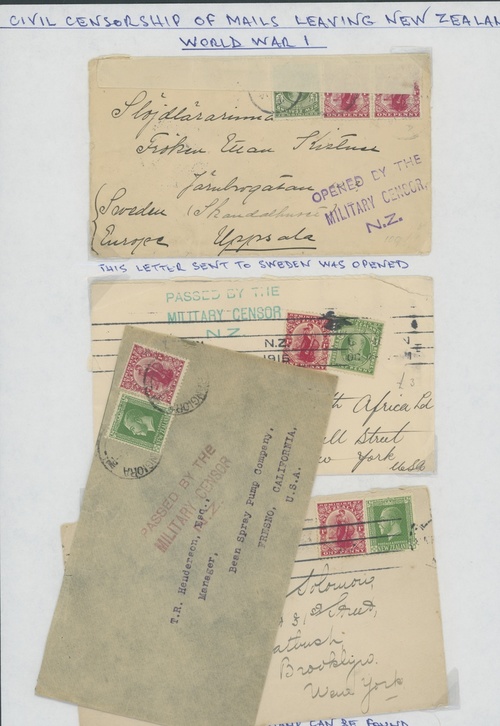 CIVIL CENSORSHIP OF MAILS LEAVING NEW ZEALAN
WORLD WAR I
Slöjdlärarinna
Fröken
Sweden
Europe
Uppsala
OPENED BY THE
MILITARY CENSOR.
N.Z.
ONE PENNY
ONE PENNY
THIS LETTER SENT TO SWEDEN WAS OPENED
PASSED BY THE
MILITARY CENSOR
N Z
N.Z.
1916
th Africa Ld
ll Street
ew York
U.S.A.
PASSED BY THE
MILITARY CENSOR
N.Z.
T.R. Henderson, Esq.,
Manager,
Bean Spray Pump Company,
FRESNO, CALIFORNIA,
U.S.A.
ONE PENNY
NEW ZEALAND
Solomon,
Street,
atbush
Brooklyn.
New York
CAN BE FOUND